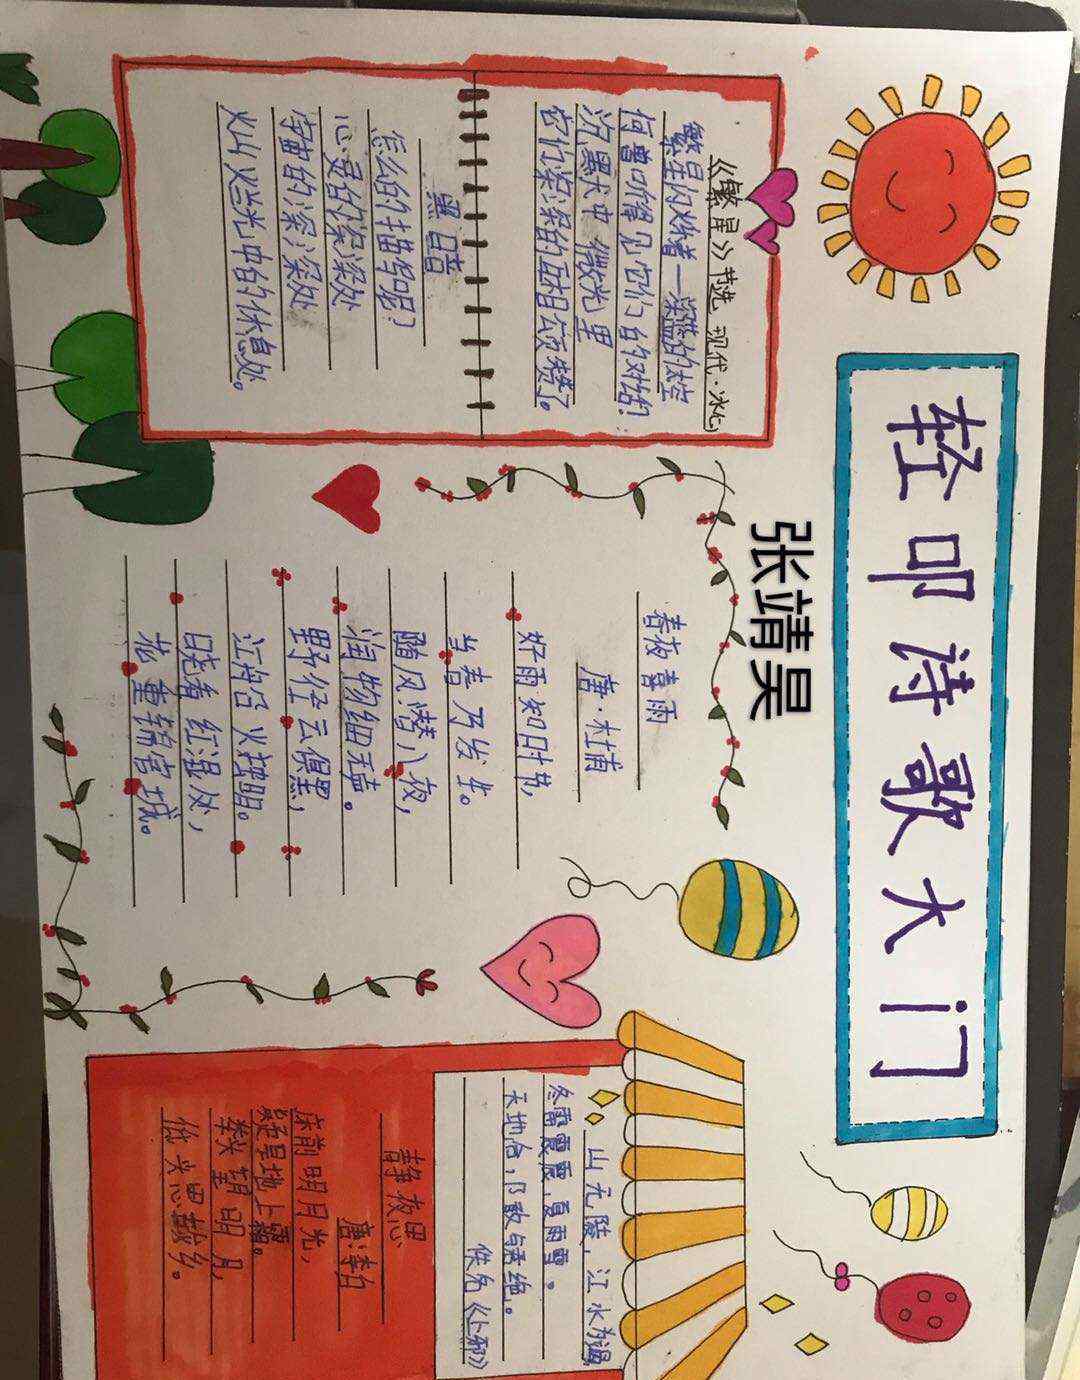 轻叩诗歌大门
张靖昊
《繁星》节选 现代·冰心
繁星闪烁着—深蓝的太空
何曾听见它们的对话?
沉默中 微光里
它们深深的互相颂赞了。
黑暗
怎么的描写呢?
心灵的深深处
宇宙的深深处
灿烂光中的休息处。
春夜喜雨
唐·杜甫
好雨知时节,
当春乃发生。
随风潜入夜,
润物细无声。
野径云俱黑,
江船火独明。
晓看红湿处,
花重锦官城。
山无陵,江水为竭
冬雷震震,夏雨雪。
天地合,乃敢与君绝。
佚名《上邪》
静夜思
唐·李白
床前明月光,
疑是地上霜。
举头望明月,
低头思故乡。